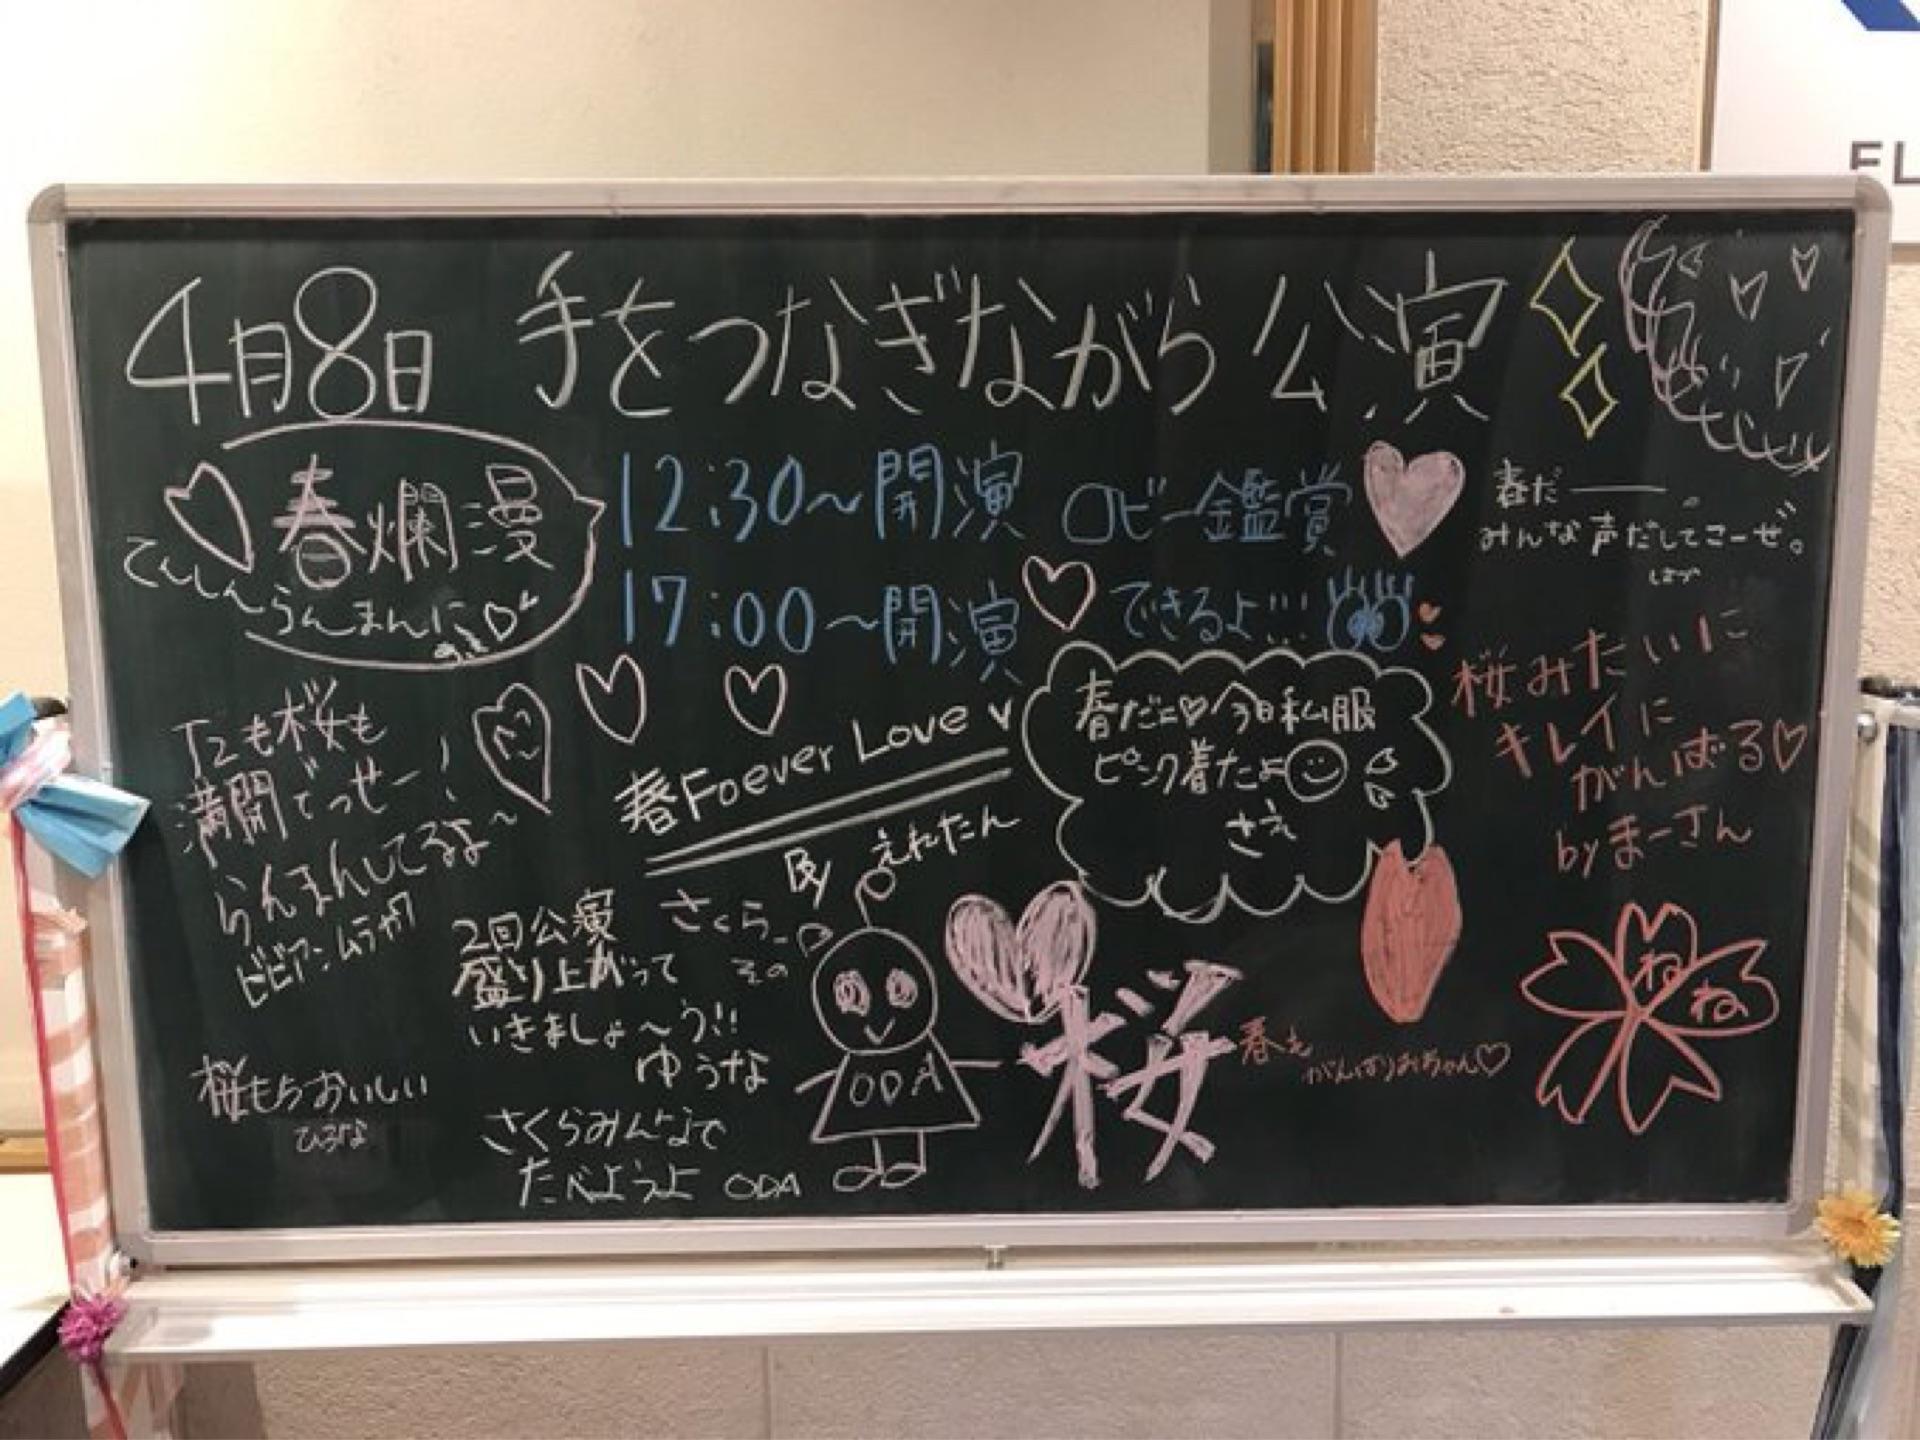 4月8日 手をつなぎながら公演
春爛漫
てんしんらんまんに
12:30～開演 ロビー鑑賞
17:00～開演 できるよ!!!
春だ――。
みんな声だしてこーぜ。
T2も桜も
満開でっせー!
らんまんしてるよ～
ビビアンムラカワ
春Foever Love
By えれたん
春だに♡今日私服
ピンク着たよ
さえ
桜みたいに
キレイに
がんばる♡
byまーさん
2回公演
盛り上がって
いきましょ～う!!
ゆうな
さくら
その
桜もちおいしい
ひろな
さくらみんなで
たべようよ ODA
ODA
桜
春も
がんばりおちゃん♡
ねね
EL